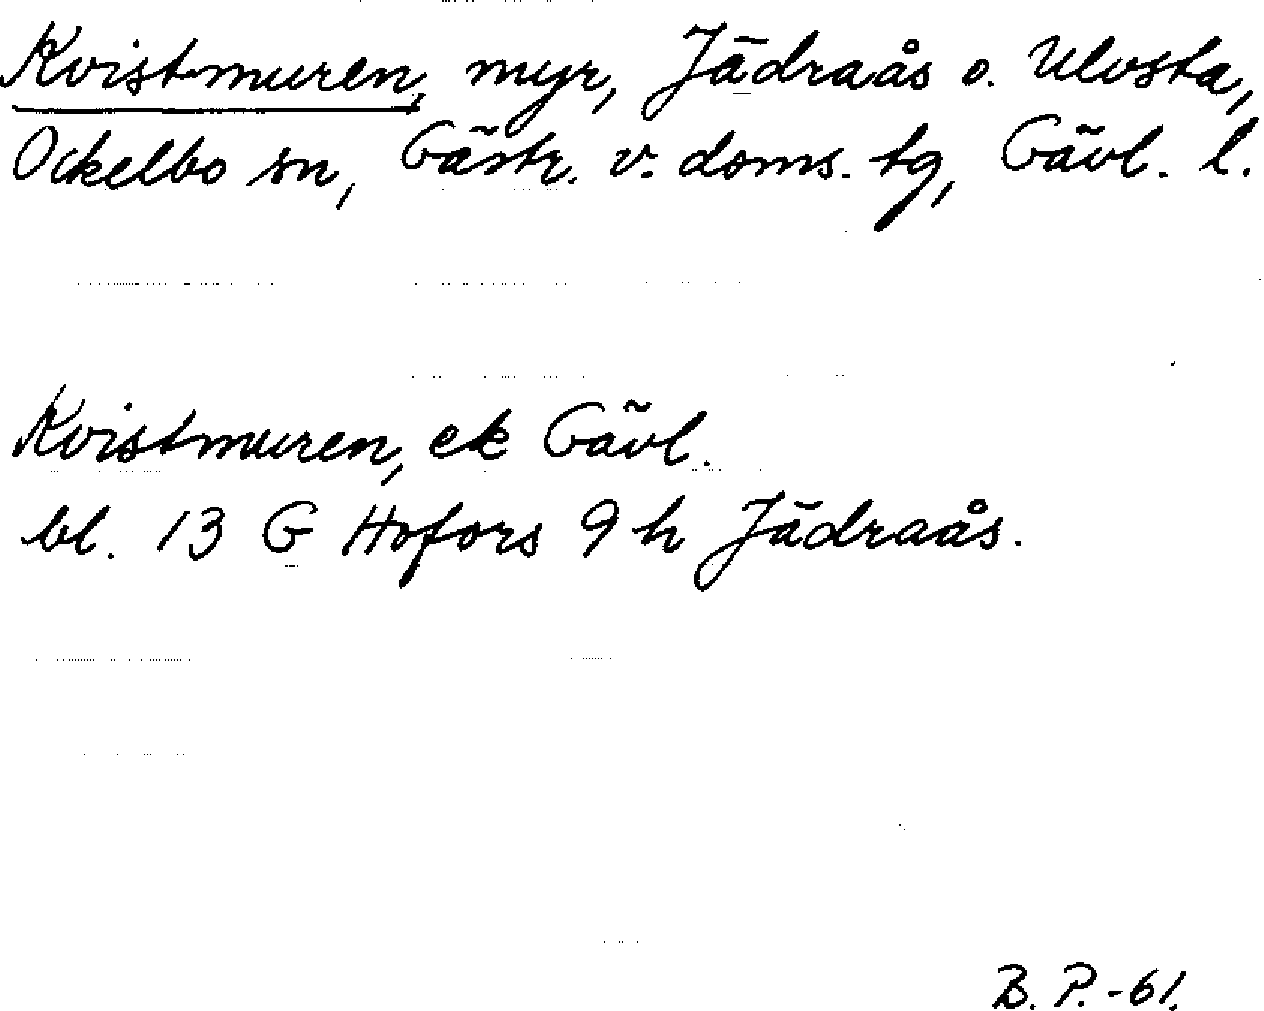 Kvistmuren, myr, Jädraås o. Ulvsta,
Ockelbo sn, Gästr. v. doms. tg, Gävl. l.
Kvistmuren, ek Gävl.
bl. 13 G Hofors 9 h Jädraås.
B. P. -61.